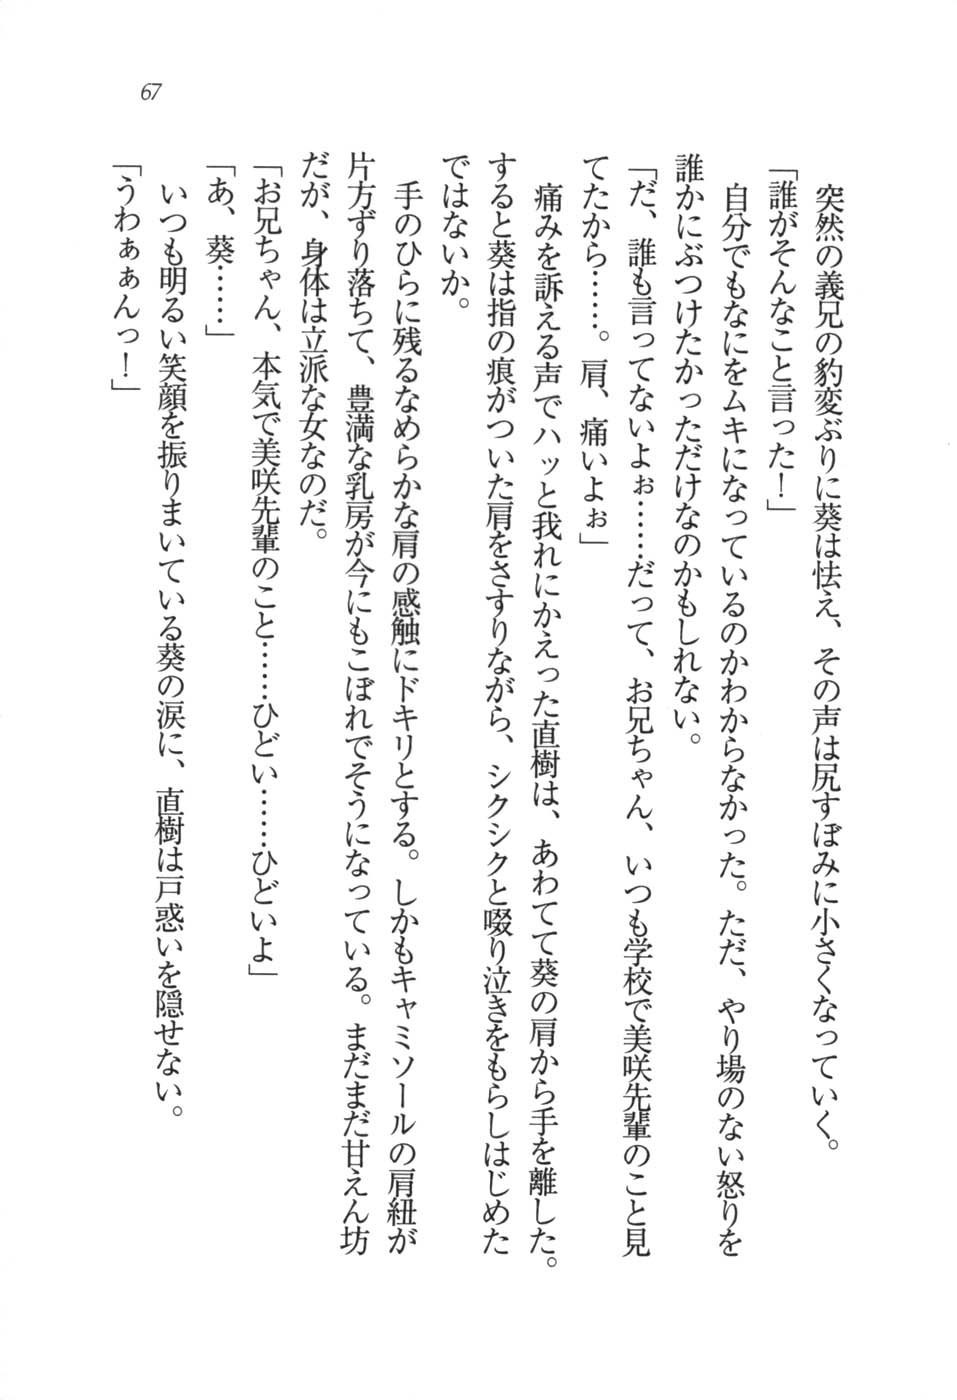 67
突然の義兄の豹変ぶりに葵は怯え、その声は尻すぼみに小さくなっていく。
「誰がそんなこと言った！」
自分でもなにをムキになっているのかわからなかった。ただ、やり場のない怒りを
誰かにぶつけたかっただけなのかもしれない。
「だ、誰も言ってないよぉ……だって、お兄ちゃん、いつも学校で美咲先輩のこと見
てたから……。肩、痛いよぉ」
痛みを訴える声でハッと我れにかえった直樹は、あわてて葵の肩から手を離した。
すると葵は指の痕がついた肩をさすりながら、シクシクと啜り泣きをもらしはじめた
ではないか。
手のひらに残るなめらかな肩の感触にドキリとする。しかもキャミソールの肩紐が
片方ずり落ちて、豊満な乳房が今にもこぼれでそうになっている。まだまだ甘えん坊
だが、身体は立派な女なのだ。
「お兄ちゃん、本気で美咲先輩のこと……ひどい……ひどいよ」
「あ、葵……」
いつも明るい笑顔を振りまいている葵の涙に、直樹は戸惑いを隠せない。
「うわぁぁんっ！」